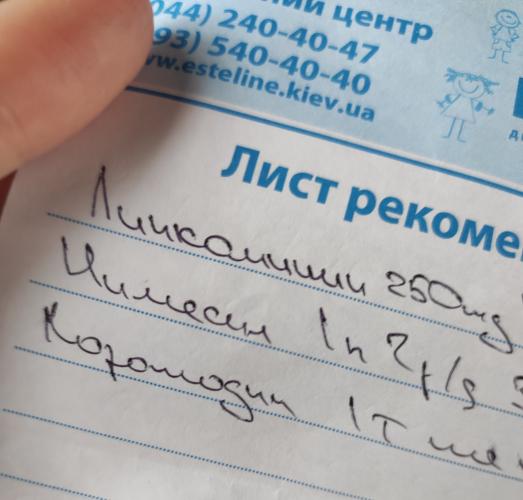 ний центр
044) 240-40-47
93) 540-40-40
www.esteline.kiev.ua
Лист рекоме
Линкомицин 250mg
Нимесил 1п 2р/д
1т